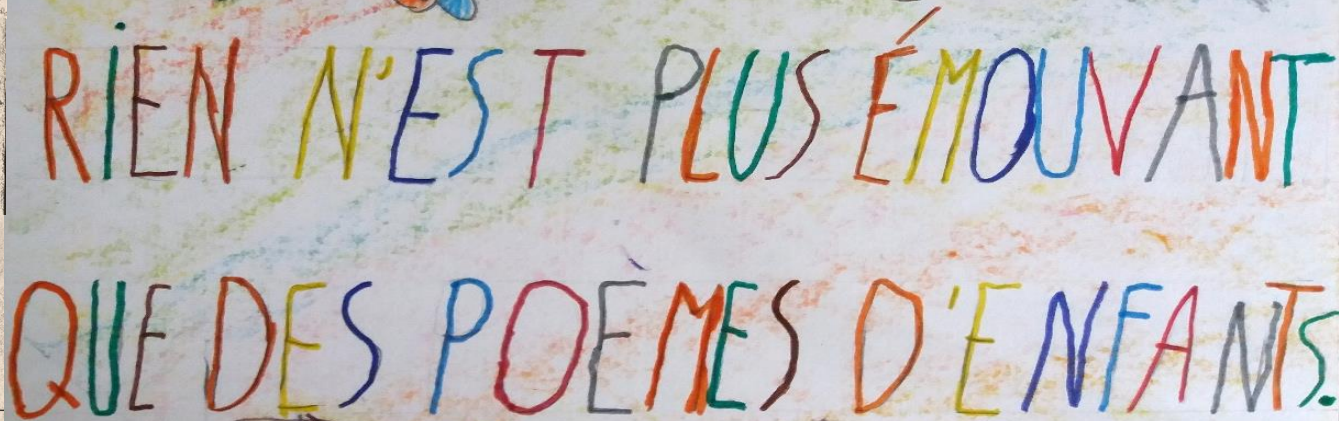 RiEN N'EST PLUS ÉMOUVANT
QUE DES POÈMES D'ENFANTS.